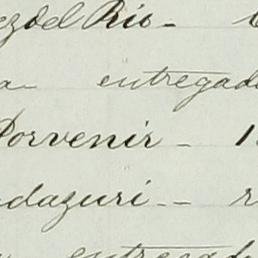 ez del Rio -
a - entregad
Porvenir - 1
dazuri -- r
entregad